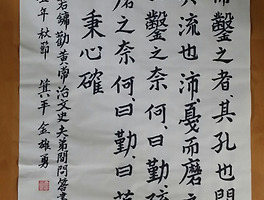 鑿之者其孔也闊
其流也沛戛而磨之
鑿之奈何曰勤疏
之奈何曰勤曰
秉心確
若鏞勸黃帝治文史夫弟間問答書
年秋節 箕平金雄勇